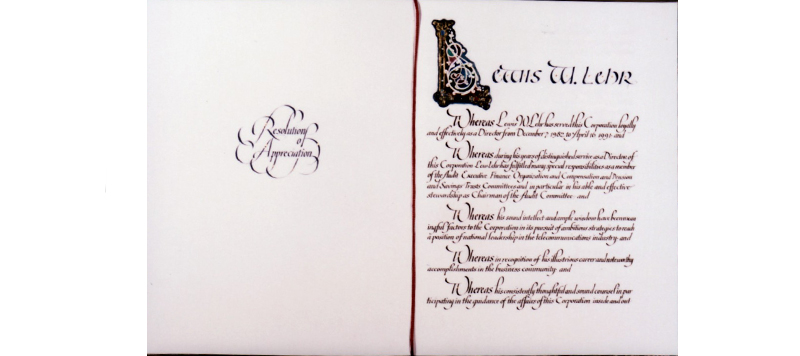 Resolution
of
Appreciation
Lewis W. Lehr
Whereas Lewis W Lehr has served this Corporation loyally
and effectively as a Director from December 7, 1987, to April 16, 1991 and
Whereas during his years of distinguished service as a Director of
this Corporation Lew Lehr has fulfilled many special responsibilities as a member
of the Audit Executive Finance Organization and Compensation and Pension
and Savings Trusts Committees and in particular in his able and effective
stewardship as Chairman of the Audit Committee and
Whereas his sound intellect and ample wisdom have been mean
ingful factors to the Corporation in its pursuit of ambitious strategies to reach
a position of national leadership in the telecommunications industry and
Whereas in recognition of his illustrious career and noteworthy
accomplishments in the business community and
Whereas his consistently thoughtful and sound counsel in par
ticipating in the guidance of the affairs of this Corporation inside and out